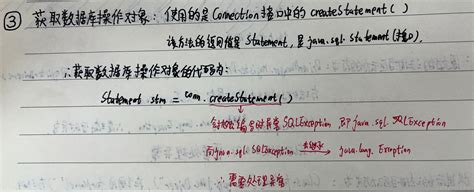 ③ 获取数据库操作对象：使用的是Connection接口中的createStatement()
该方法的返回值是Statement，是java.sql.Statement(接口)，
∴获取数据库操作对象的代码为：
Statement stm = conn.createStatement()
编译时异常SQLException，即java.sql.SQLException
而java.sql.SQLException → java.lang.Exception
∴需要处理异常